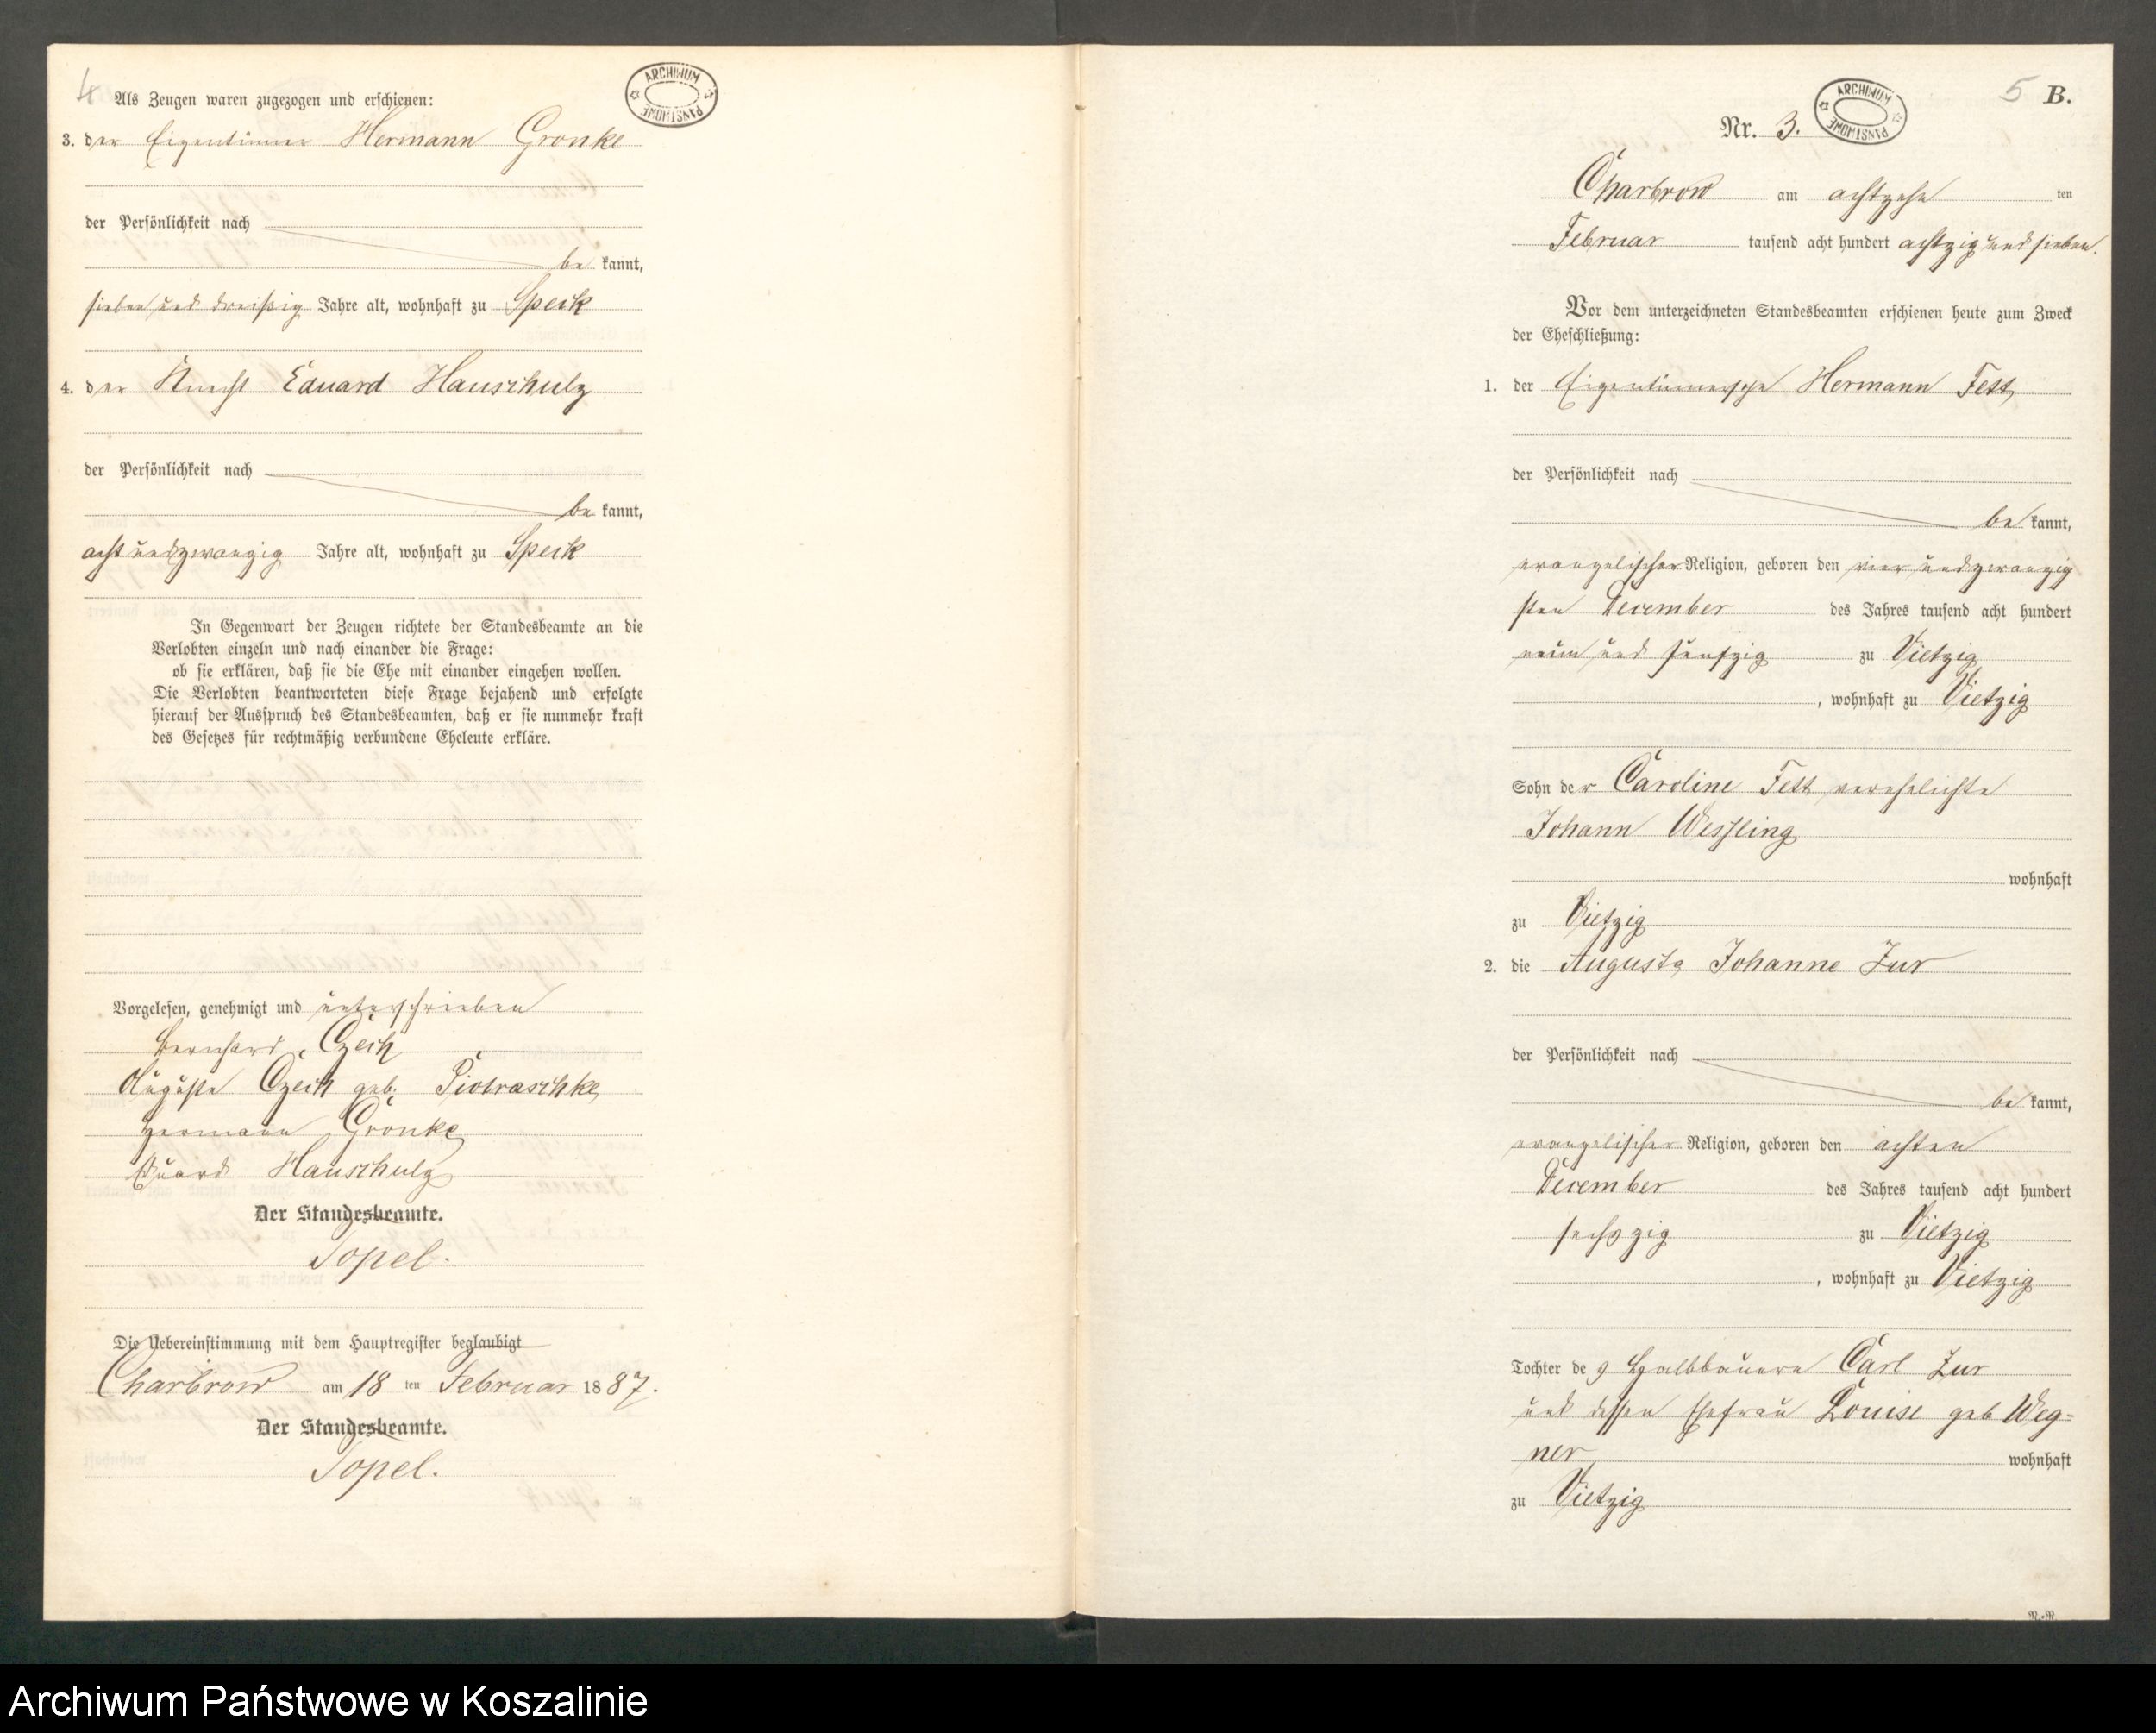 4
ARCHIWUM PAŃSTWOWE
Als Zeugen waren zugezogen und erschienen:
3. der Eigentümer Hermann Gronke
der Persönlichkeit nach
be kannt,
sieben und dreißig Jahre alt, wohnhaft zu Speck
4. der Knecht Eduard Hauschulz
der Persönlichkeit nach
be kannt,
acht und zwanzig Jahre alt, wohnhaft zu Speck
In Gegenwart der Zeugen richtete der Standesbeamte an die
Verlobten einzeln und nach einander die Frage:
ob sie erklären, daß sie die Ehe mit einander eingehen wollen.
Die Verlobten beantworteten diese Frage bejahend und erfolgte
hierauf der Ausspruch des Standesbeamten, daß er sie nunmehr kraft
des Gesetzes für rechtmäßig verbundene Eheleute erkläre.
Vorgelesen, genehmigt und unterschrieben
Bernhard Czech
Auguste Czech geb. Piotraschke
Hermann Gronke
Eduard Hauschulz
Der Standesbeamte.
Topel.
Die Uebereinstimmung mit dem Hauptregister beglaubigt
Charbrow am 18 ten Februar 1887.
Der Standesbeamte.
Topel.
5 B.
ARCHIWUM PAŃSTWOWE
Nr. 3.
Charbrow am achtzehn ten
Februar tausend acht hundert achtzig und sieben.
Vor dem unterzeichneten Standesbeamten erschienen heute zum Zweck
der Eheschließung:
1. der Hermann Fett
der Persönlichkeit nach
be kannt,
evangelischer Religion, geboren den vier und zwanzig
sten December des Jahres tausend acht hundert
neun und fünfzig zu Vietzig
, wohnhaft zu Vietzig
Sohn der Caroline Fett verehelichte
Johann Wessling
wohnhaft
zu Vietzig
2. die Auguste Johanne Zur
der Persönlichkeit nach
be kannt,
evangelischer Religion, geboren den achten
December des Jahres tausend acht hundert
sechszig zu Vietzig
, wohnhaft zu Vietzig
Tochter des Halbbauern Carl Zur
und dessen Ehefrau Louise geb Weg-
ner wohnhaft
zu Vietzig
Archiwum Państwowe w Koszalinie